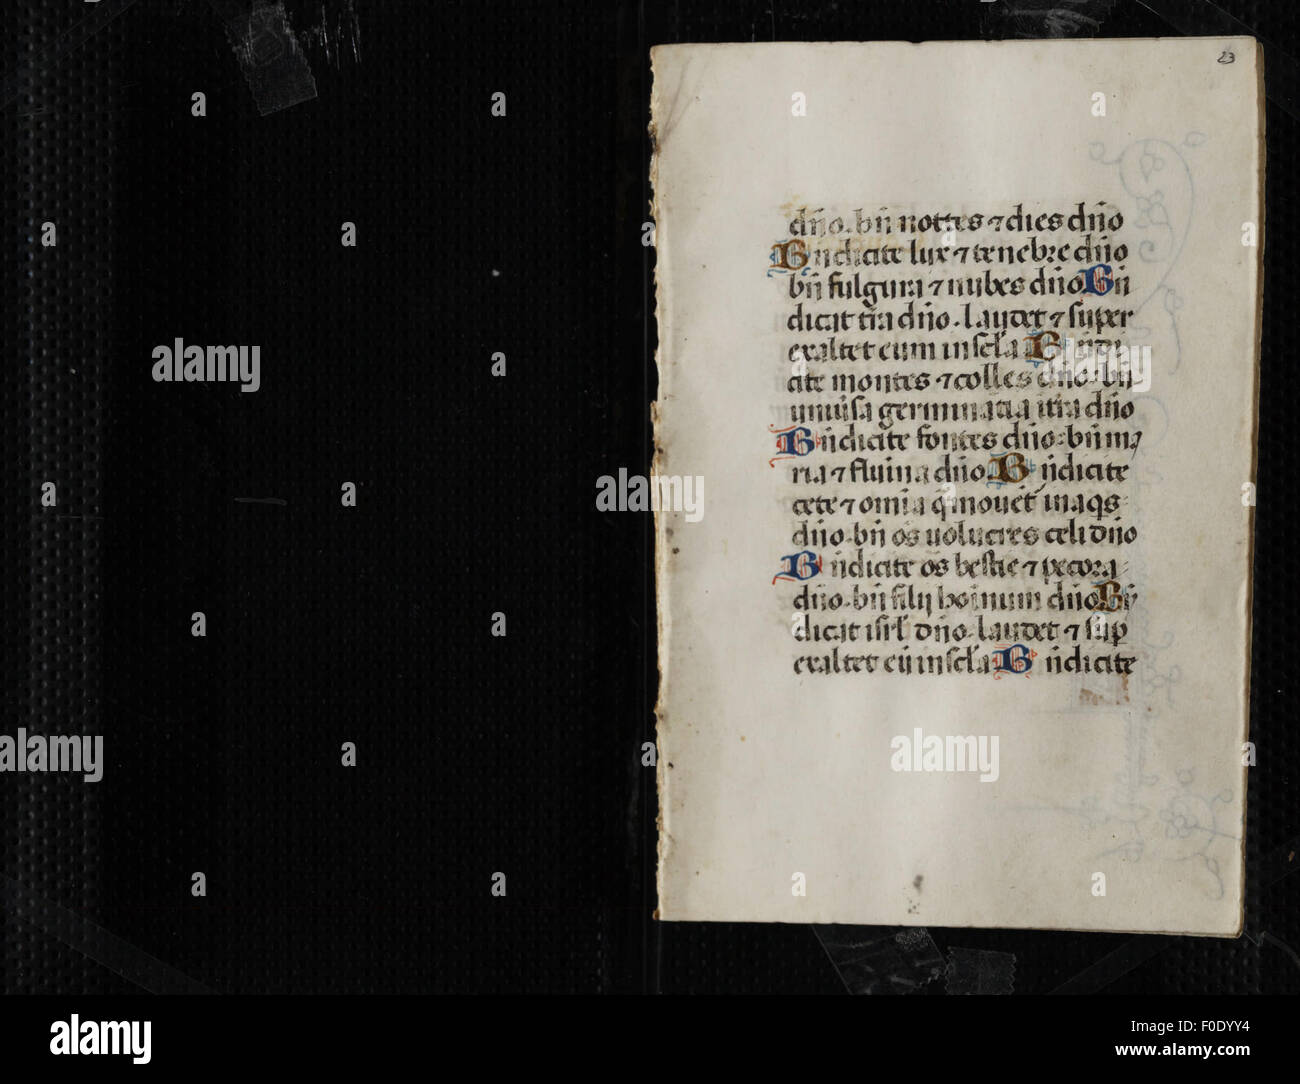 23
dño. bñ nottes ⁊ dies dño
Bñdicite lux ⁊ tenebre dño
bñ fulgura ⁊ nubes dño. Bñ
dicat tra dño. laudet ⁊ super
exaltet eum in scla Bñdi
cite montes ⁊ colles dño. bñ
univsa germinatia itra dño
Bñdicite fontes dño. bñ ma
ria ⁊ flumina dño. Bñdicite
cete ⁊ omia q̃ movet̃ in aqs
dño. bñ os volucres celi dño
Bñdicite os bestie ⁊ pecora
dño. bñ filij hoinum dño. Bñ
dicat isrl dño. laudet ⁊ sup
exaltet eũ in scla Bñdicite
alamy
alamy
alamy
alamy
a
alamy
Image ID: F0DYY4
www.alamy.com